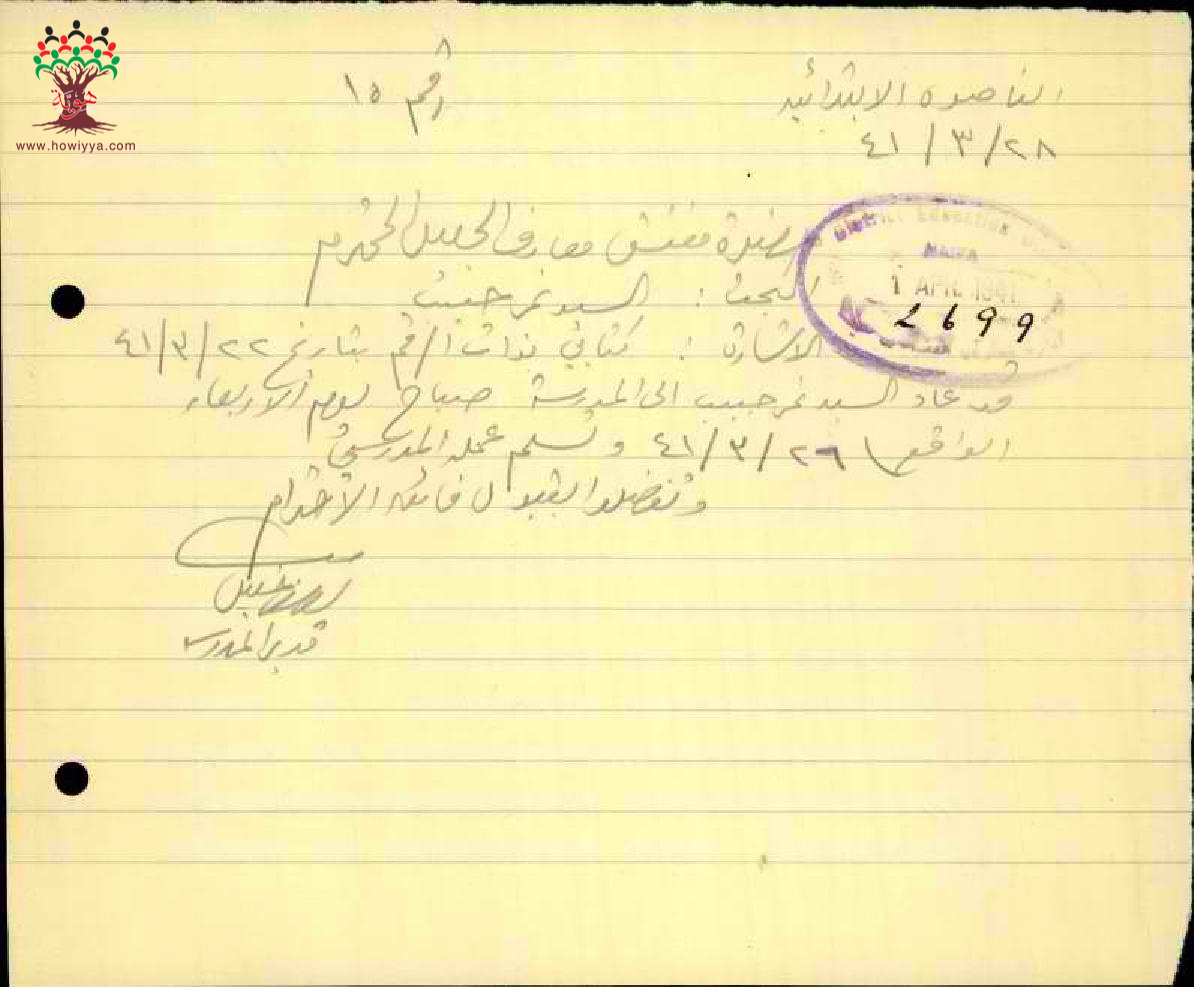 هوية
www.howiyya.com
الناصرة الابتدائية
رقم ١٥
٢٨/٣/٤١
حضرة مفتش معارف الجليل المحترم
District Education
HAIFA
1 APR 1941
2699
البحث : السيد نمر حبيب
الاشارة : كتابي بذات الرقم بتاريخ ٢٢/٣/٤١
قد عاد السيد نمر حبيب الى المدرسة صباح يوم الاربعاء
الواقع ٢٦/٣/٤١ وتسلم عمله المدرسي
وتفضلوا بقبول فائق الاحترام
مدير المدرسة